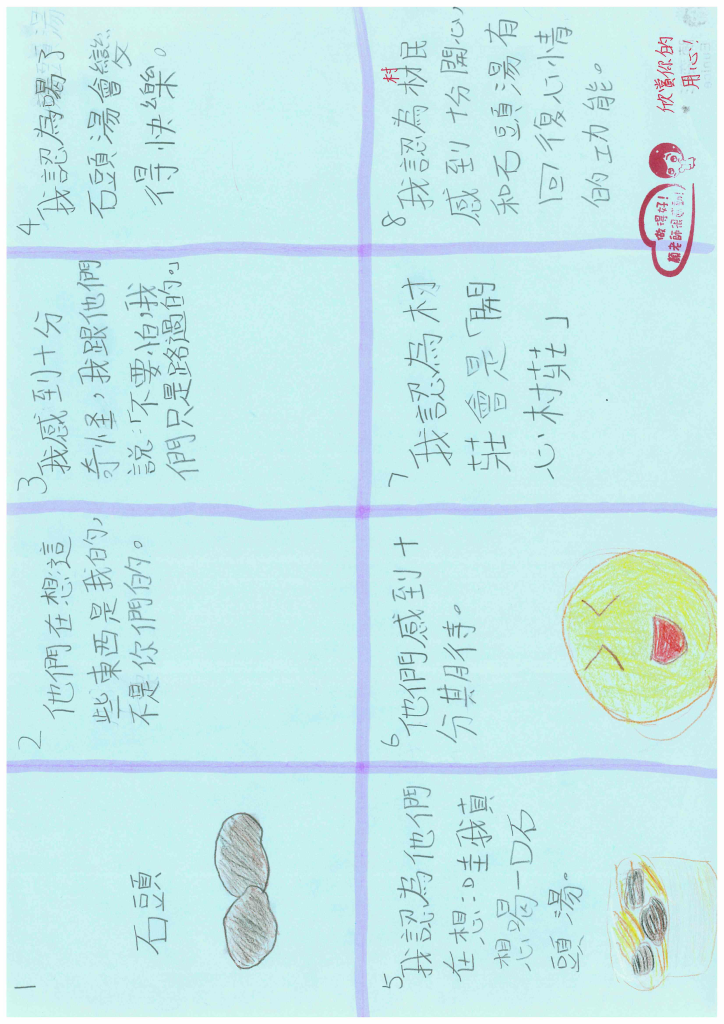 1
石頭
2
他們在想這
些東西是我的,
不是你們的。
3
我感到十分
奇怪,我跟他們
說:「不要怕,我
們只是路過的。」
4
我認為喝了
石頭湯會變
得快樂。
5
我認為他們
在想:哇我真
想喝一口石
頭湯。
6
他們感到十
分期待。
7
我認為村
莊會是「開
心村莊」
8
村
我認為林民
感到十份開心,
和石頭湯有
回復心情
的功能。
欣賞你的
用心!
做得好!
顏老師